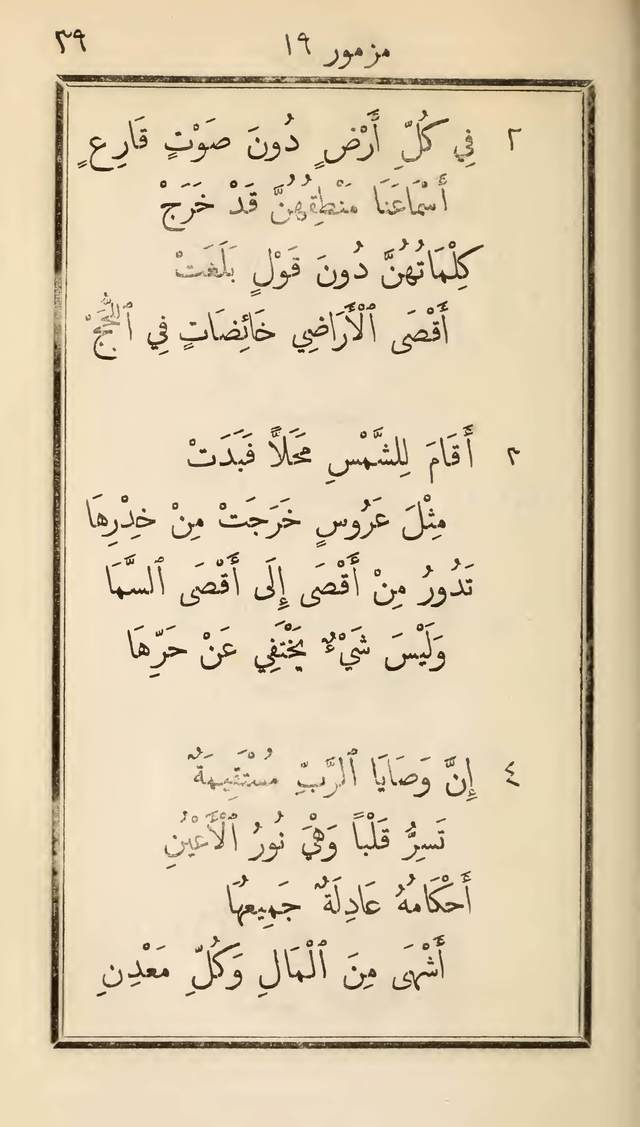 مزمور ١٩ ٣٩
٢ فِي كُلِّ أَرْضٍ دُونَ صَوْتٍ قَارِعٍ
أَسْمَاعَنَا مَنْطِقُهُنَّ قَدْ خَرَجْ
كِلْمَاتُهُنَّ دُونَ قَوْلٍ بَلَغَتْ
أَقْصَى ٱلْأَرَاضِي خَائِضَاتٍ فِي ٱللُّجَجْ
٣ أَقَامَ لِلشَّمْسِ مَحَلاًّ فَبَدَتْ
مِثْلَ عَرُوسٍ خَرَجَتْ مِنْ خِدْرِهَا
تَدُورُ مِنْ أَقْصَى إِلَى أَقْصَى ٱلسَّمَا
وَلَيْسَ شَيْءٌ يَخْتَفِي عَنْ حَرِّهَا
٤ إِنَّ وَصَايَا ٱلرَّبِّ مُسْتَقِيمَةٌ
تَسِرُّ قَلْبًا وَهْيَ نُورُ ٱلْأَعْيُنِ
أَحْكَامُهُ عَادِلَةٌ جَمِيعُهَا
أَشْهَى مِنَ ٱلْمَالِ وَكُلِّ مَعْدِنِ